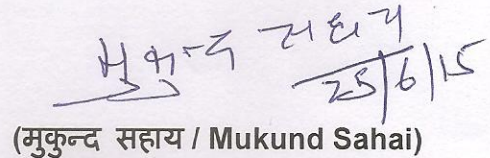 मुकुन्द सहाय
25/6/15
(मुकुन्द सहाय / Mukund Sahai)